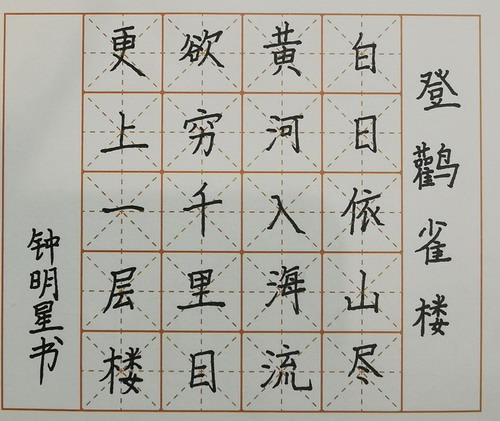 登鹳雀楼
白日依山尽
黄河入海流
欲穷千里目
更上一层楼
钟明星书